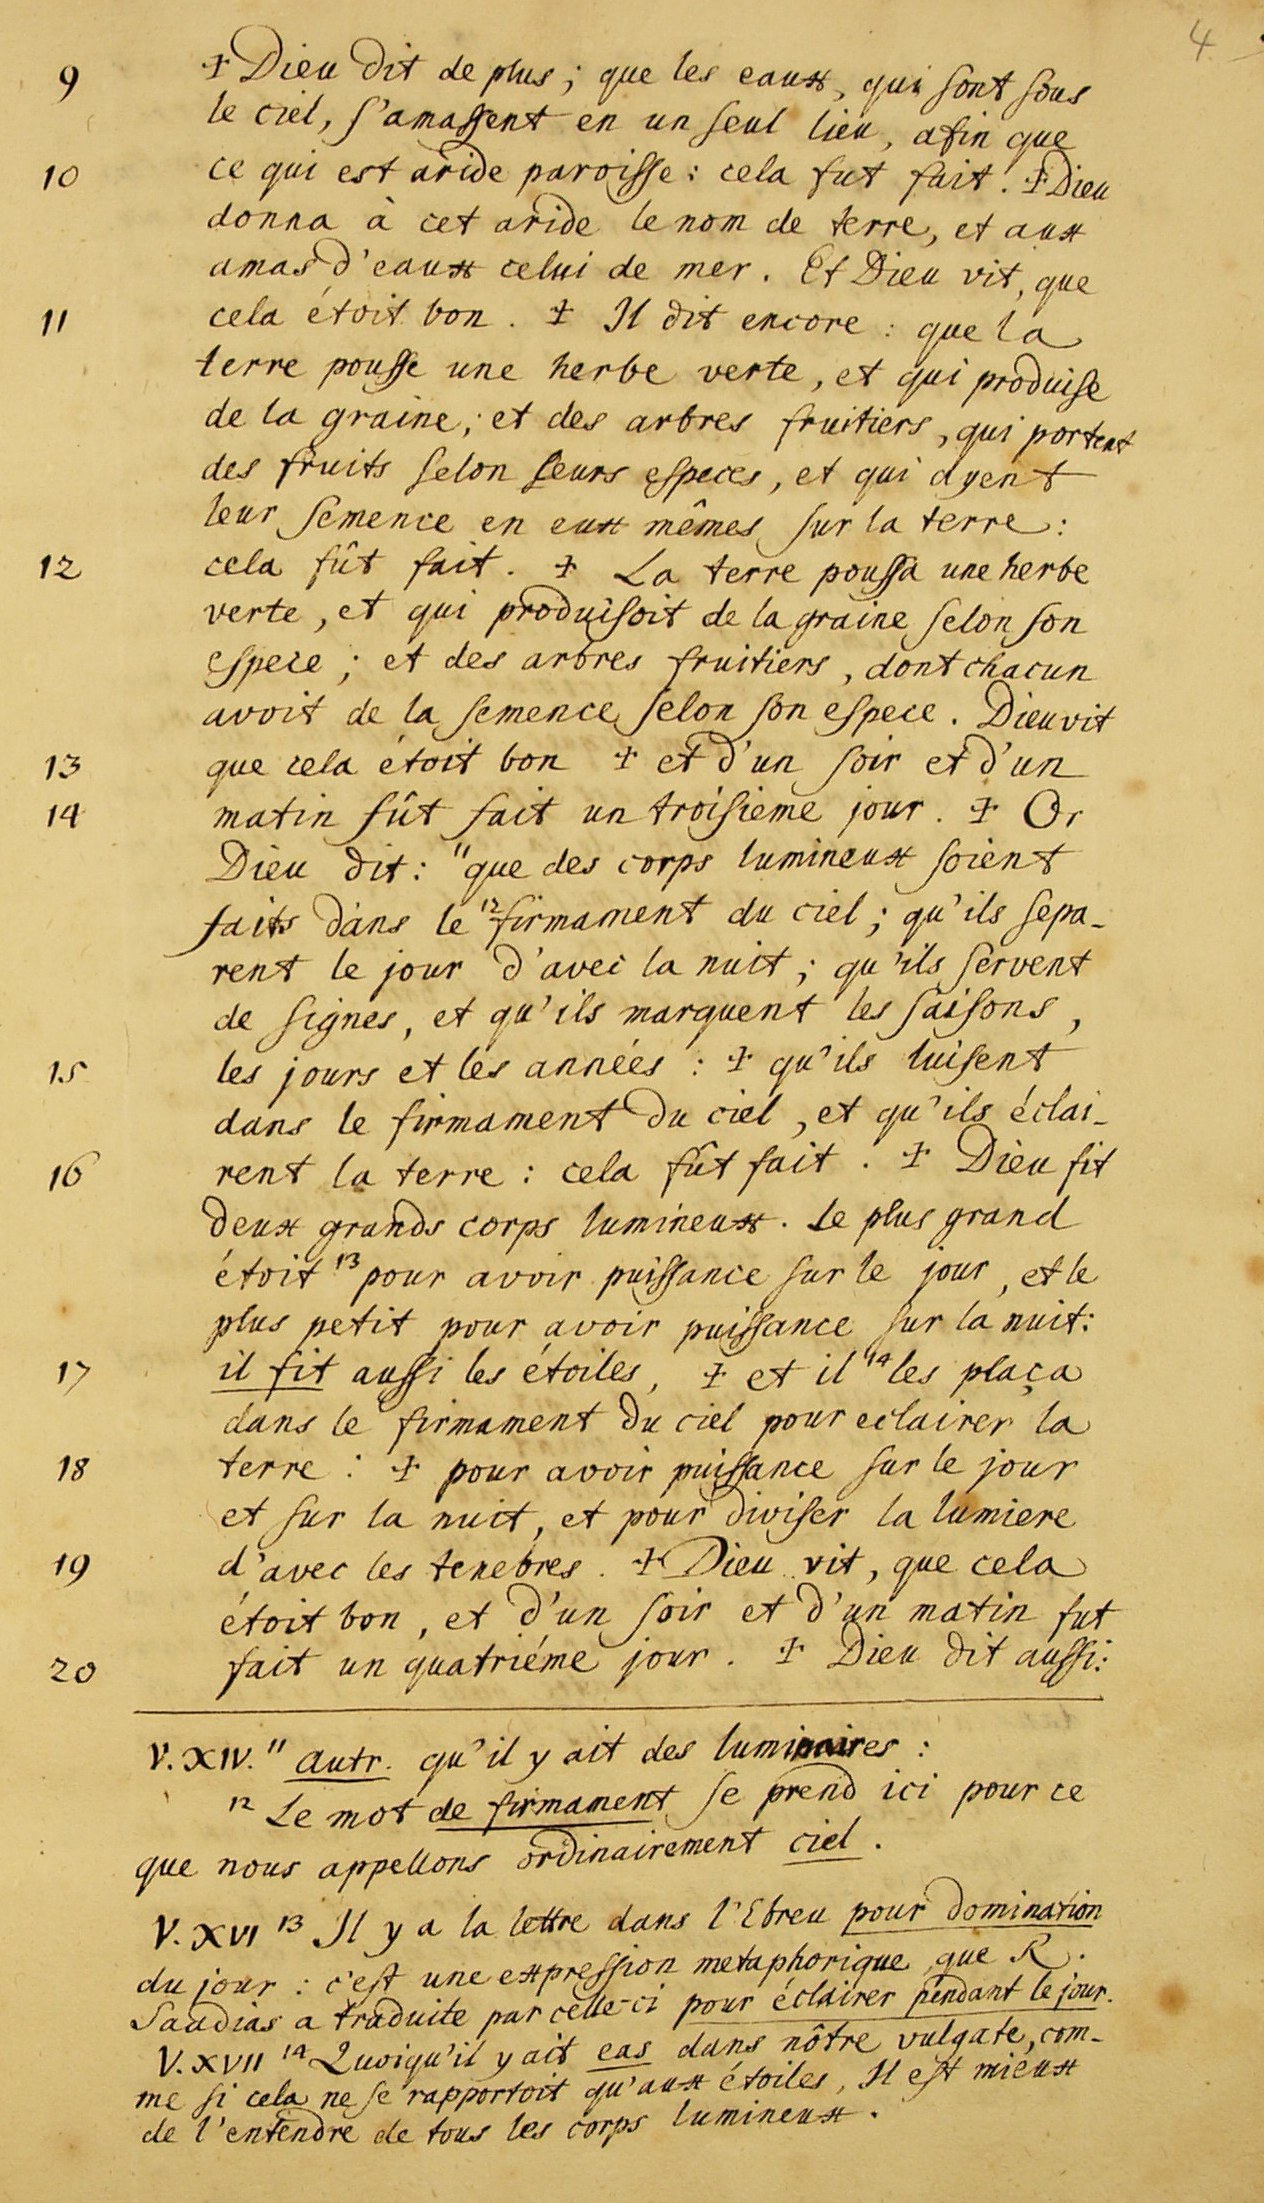 4
9 ‡ Dieu dit de plus; que les eaux, qui sont sous
le ciel, s'amassent en un seul lieu, afin que
10 ce qui est aride paroisse: cela fut fait. ‡ Dieu
donna à cet aride le nom de terre, et aux
amas d'eaux celui de mer. Et Dieu vit, que
11 cela étoit bon. ‡ Il dit encore: que la
terre pousse une herbe verte, et qui produise
de la graine; et des arbres fruitiers, qui portent
des fruits selon leurs especes, et qui ayent
leur semence en eux mêmes sur la terre:
12 cela fût fait. ‡ La terre poussa une herbe
verte, et qui produisoit de la graine selon son
espece; et des arbres fruitiers, dont chacun
avoit de la semence selon son espece. Dieu vit
13 que cela étoit bon ‡ et d'un soir et d'un
14 matin fût fait un troisieme jour. ‡ Or
Dieu dit: 11 que des corps lumineux soient
faits dans le 12 firmament du ciel; qu'ils sepa-
rent le jour d'avec la nuit; qu'ils servent
de signes, et qu'ils marquent les saisons,
15 les jours et les années: ‡ qu'ils luisent
dans le firmament du ciel, et qu'ils éclai-
16 rent la terre: cela fût fait. ‡ Dieu fit
deux grands corps lumineux. Le plus grand
étoit 13 pour avoir puissance sur le jour, et le
plus petit pour avoir puissance sur la nuit:
17 il fit aussi les étoiles, ‡ et il 14 les plaça
dans le firmament du ciel pour eclairer la
18 terre: ‡ pour avoir puissance sur le jour
et sur la nuit, et pour diviser la lumiere
19 d'avec les tenebres. ‡ Dieu vit, que cela
étoit bon, et d'un soir et d'un matin fut
20 fait un quatriéme jour. ‡ Dieu dit aussi:
V. XIV. 11 autr. qu'il y ait des luminaires:
12 Le mot de firmament se prend ici pour ce
que nous appellons ordinairement ciel.
V. XVI 13 Il y a la lettre dans l'Ebreu pour domination
du jour: c'est une expression metaphorique que R.
Saadias a traduite par celle-ci pour éclairer pendant le jour.
V. XVII 14 Quoiqu'il y ait eas dans nôtre vulgate, com-
me si cela ne se rapportoit qu'aux étoiles, Il est mieux
de l'entendre de tous les corps lumineux.